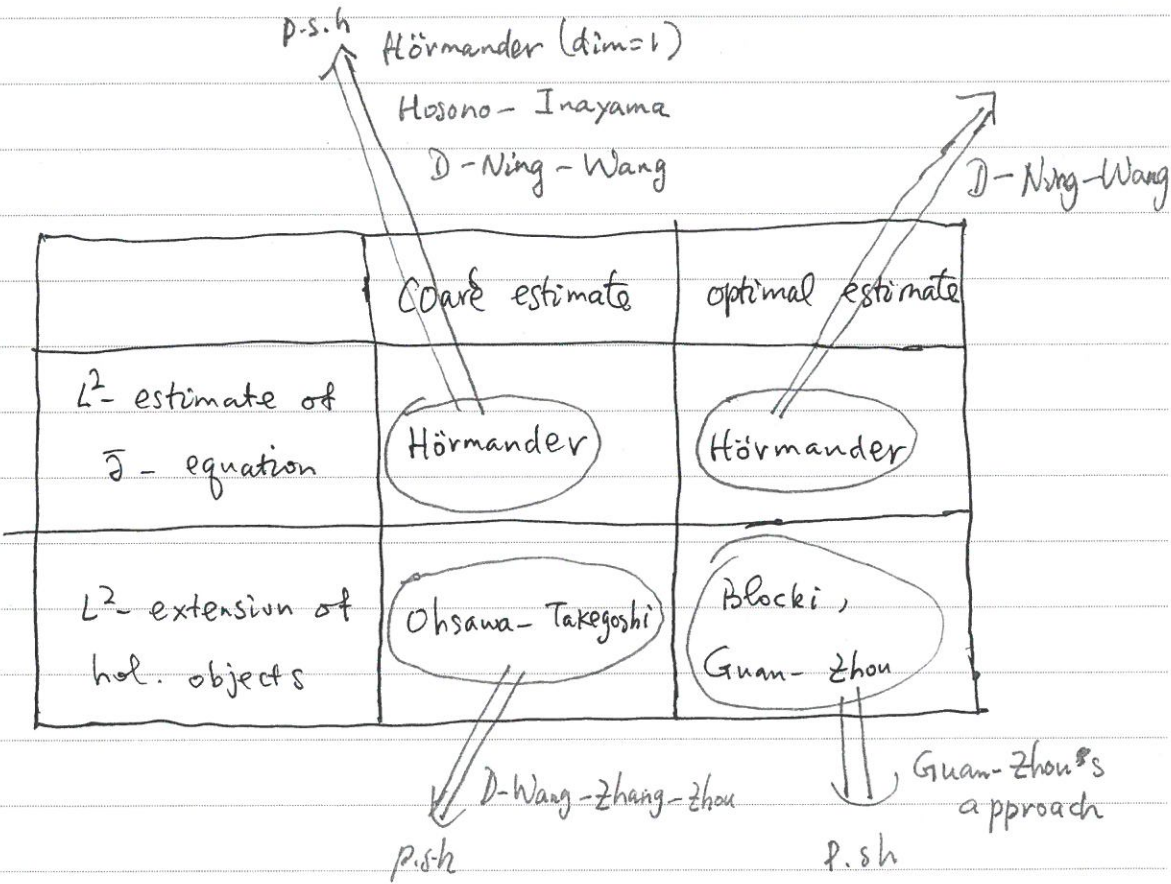 p.s.h
Hörmander (dim=1)
Hosono - Inayama
D - Ning - Wang
D - Ning - Wang
Coarse estimate
optimal estimate
L²- estimate of
∂̄ - equation
Hörmander
Hörmander
L²- extension of
hol. objects
Ohsawa - Takegoshi
Blocki,
Guan - Zhou
D - Wang - Zhang - Zhou
Guan - Zhou's
approach
p.s.h
P.sh